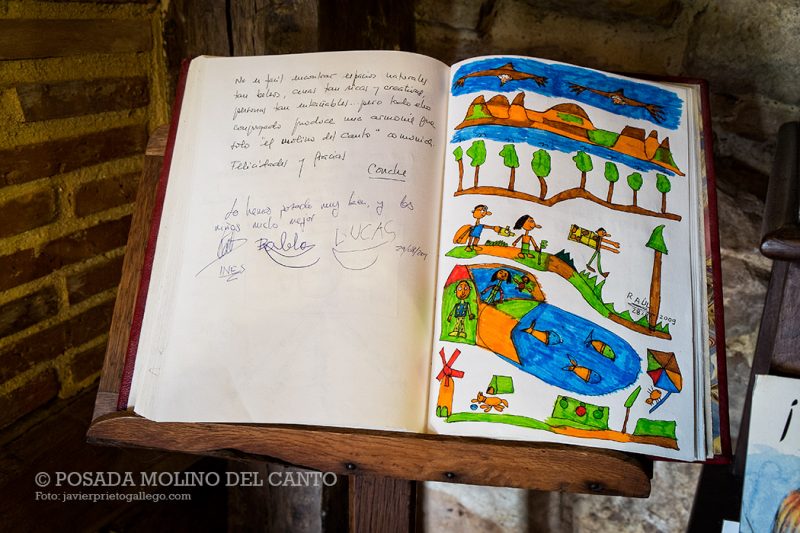 No es fácil encontrar espacios naturales
tan bellos, casas tan ricas y creativas,
personas tan entrañables... pero todo ello
conjugado produce una armonía que
solo "el molino del Canto" comunica.
Felicidades y gracias
Concha
Lo hemos pasado muy bien, y los
niños mucho mejor
Pablo
LUCAS
INES
RAÚL
28
2009
© POSADA MOLINO DEL CANTO
Foto: javierprietogallego.com